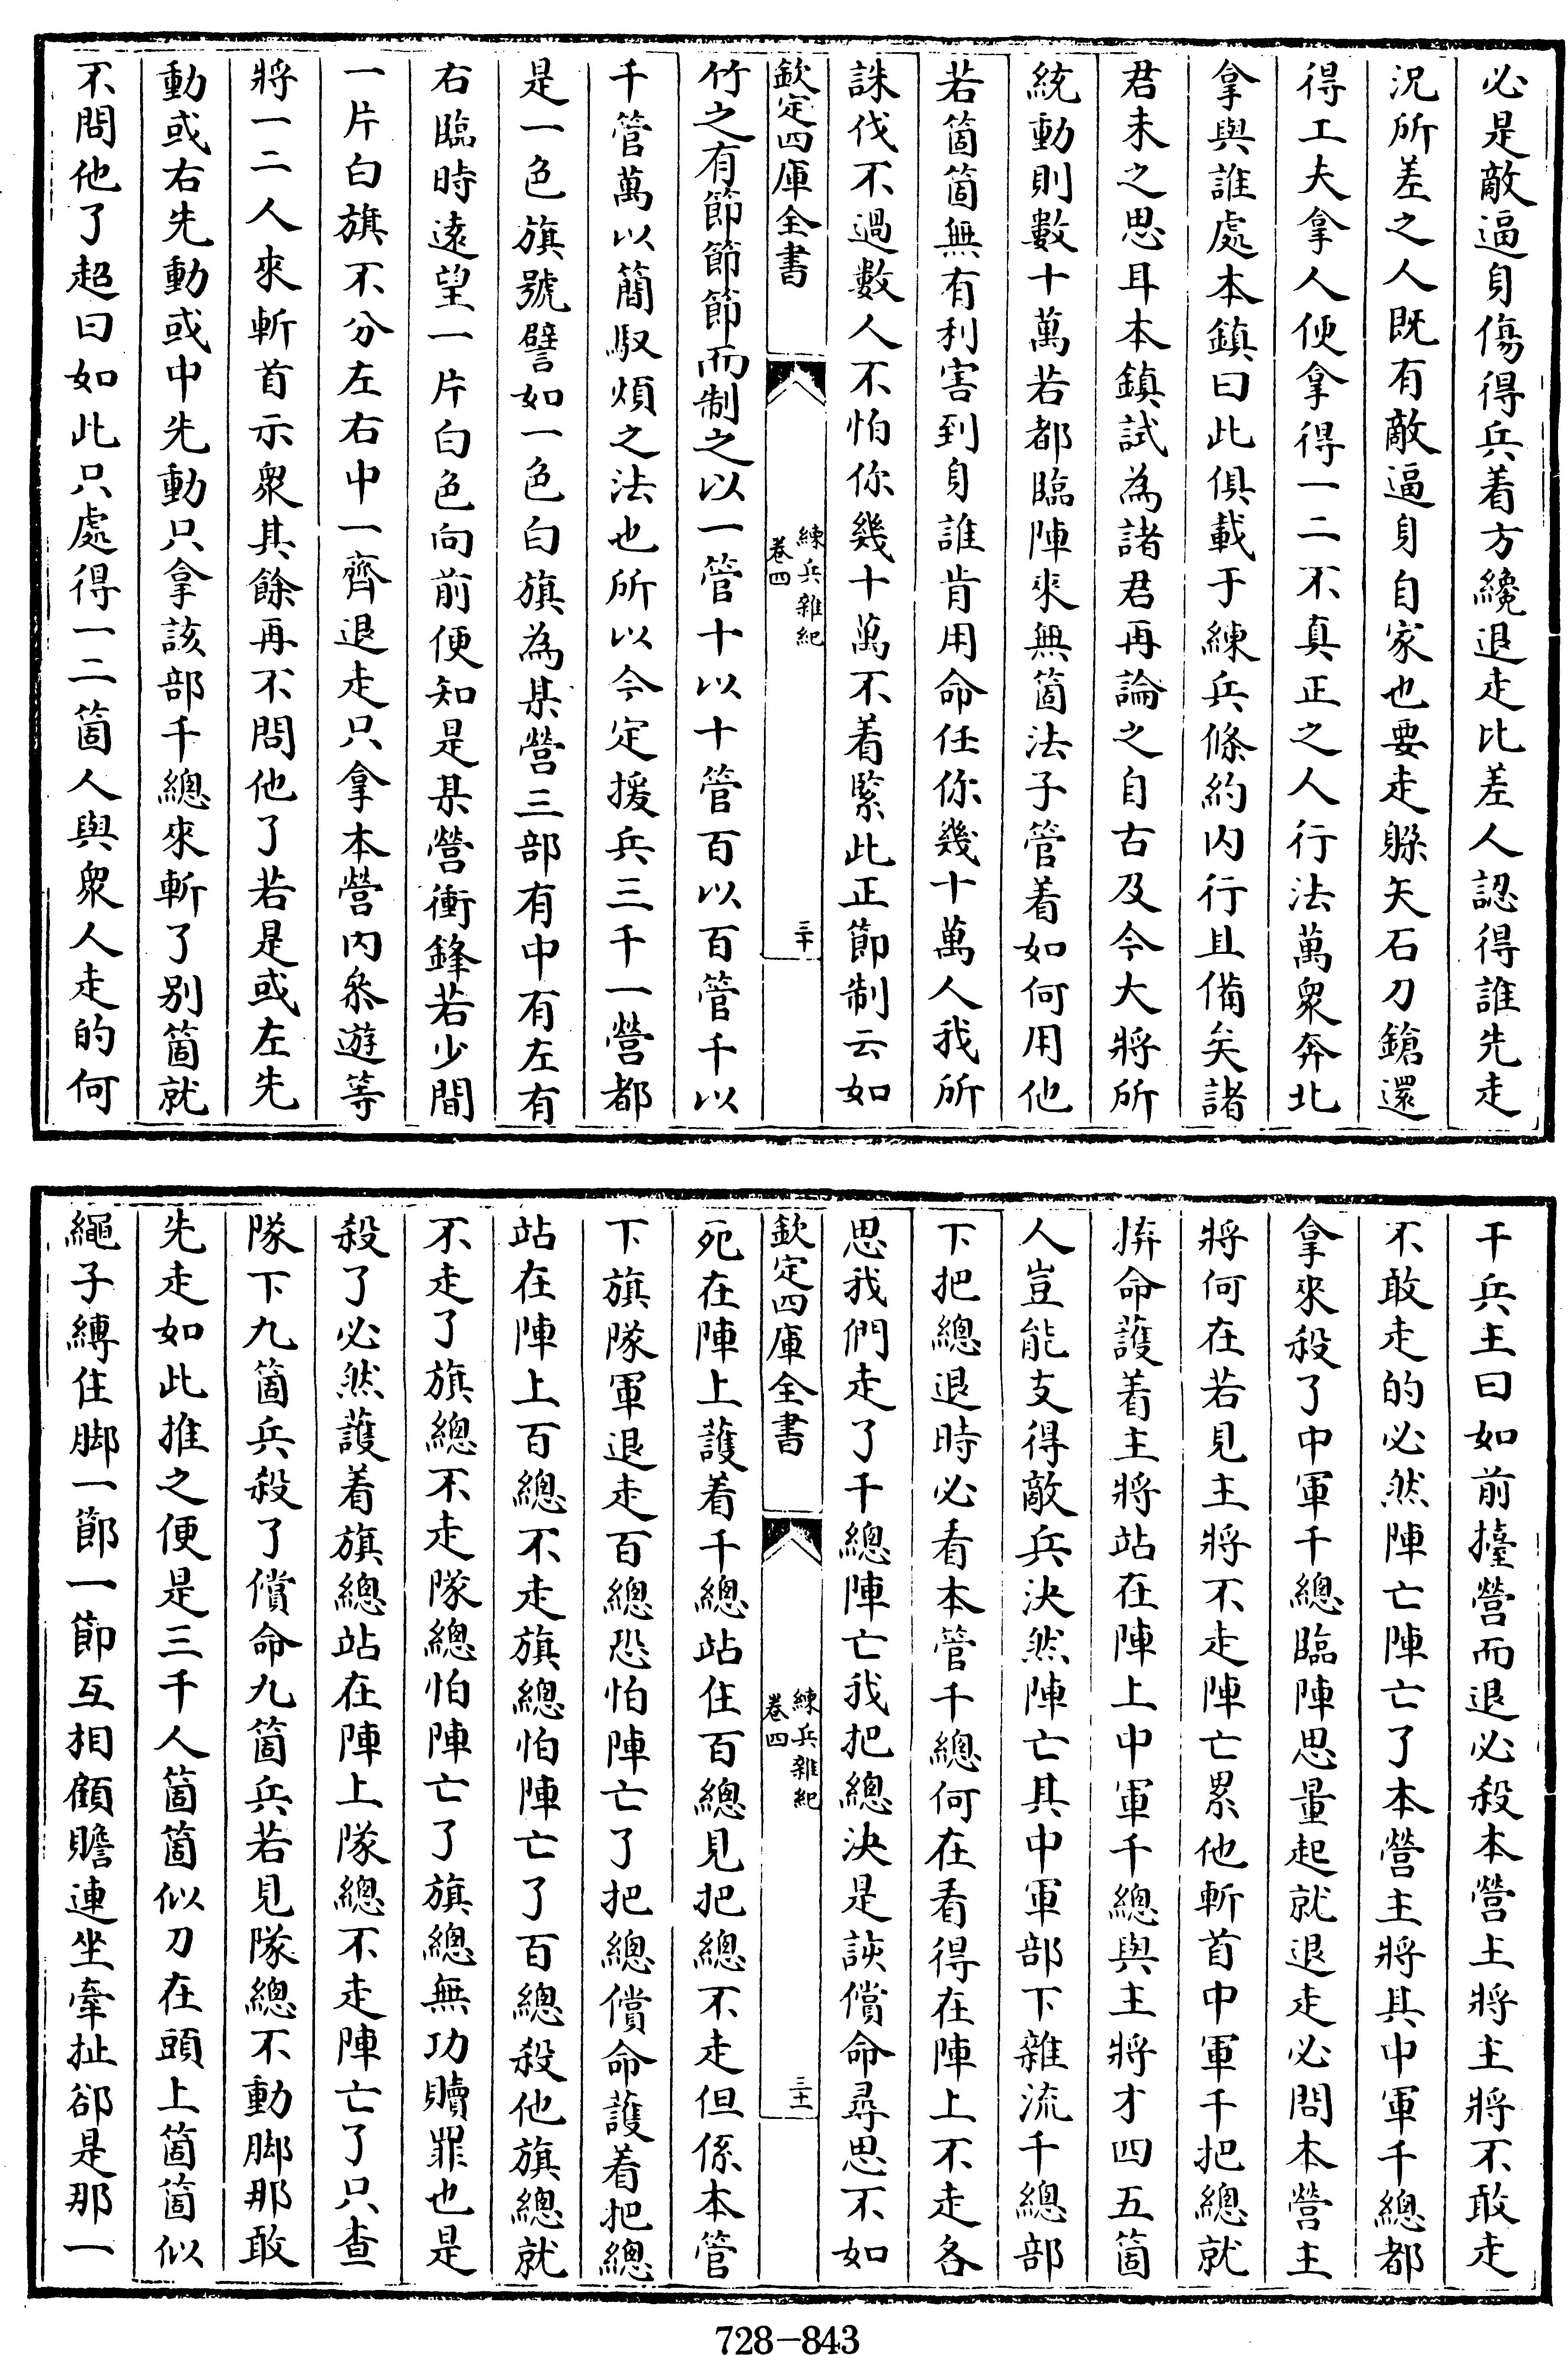 必是敵逼身傷得兵着方纔退走比差人認得誰先走
況所差之人既有敵逼身自家也要走躱矢石刀鎗還
得工夫拿人便拿得一二不真正之人行法萬衆奔北
拿與誰處本鎮曰此俱載于練兵條約内行且備矣諸
君未之思耳本鎮試為諸君再論之自古及今大將所
統動則數十萬若都臨陣來無箇法子管着如何用他
若箇箇無有利害到身誰肯用命任你幾十萬人我所
誅伐不過數人不怕你幾十萬不着緊此正節制云如
欽定四庫全書
練兵雜紀
卷四
三十
竹之有節節節而制之以一管十以十管百以百管千以
千管萬以簡馭煩之法也所以今定援兵三千一營都
是一色旗號譬如一色白旗為某營三部有中有左有
右臨時遠望一片白色向前便知是某營衝鋒若少間
一片白旗不分左右中一齊退走只拿本營内叅遊等
將一二人來斬首示衆其餘再不問他了若是或左先
動或右先動或中先動只拿該部千總來斬了别箇就
不問他了超曰如此只處得一二箇人與衆人走的何
干兵主曰如前擡營而退必殺本營主將主將不敢走
不敢走的必然陣亡陣亡了本營主將其中軍千總都
拿來殺了中軍千總臨陣思量起就退走必問本營主
將何在若見主將不走陣亡累他斬首中軍千把總就
捹命護着主將站在陣上中軍千總與主將才四五箇
人豈能支得敵兵決然陣亡其中軍部下雜流千總部
下把總退時必看本管千總何在看得在陣上不走各
思我們走了千總陣亡我把總決是誅償命尋思不如
欽定四庫全書
練兵雜紀
卷四
三十一
死在陣上護着千總站住百總見把總不走但係本管
下旗隊軍退走百總恐怕陣亡了把總償命護着把總
站在陣上百總不走旗總怕陣亡了百總殺他旗總就
不走了旗總不走隊總怕陣亡了旗總無功贖罪也是
殺了必然護着旗總站在陣上隊總不走陣亡了只查
隊下九箇兵殺了償命九箇兵若見隊總不動脚那敢
先走如此推之便是三千人箇箇似刀在頭上箇箇似
繩子縳住脚一節一節互相顧瞻連坐牽扯郤是那一
728-843